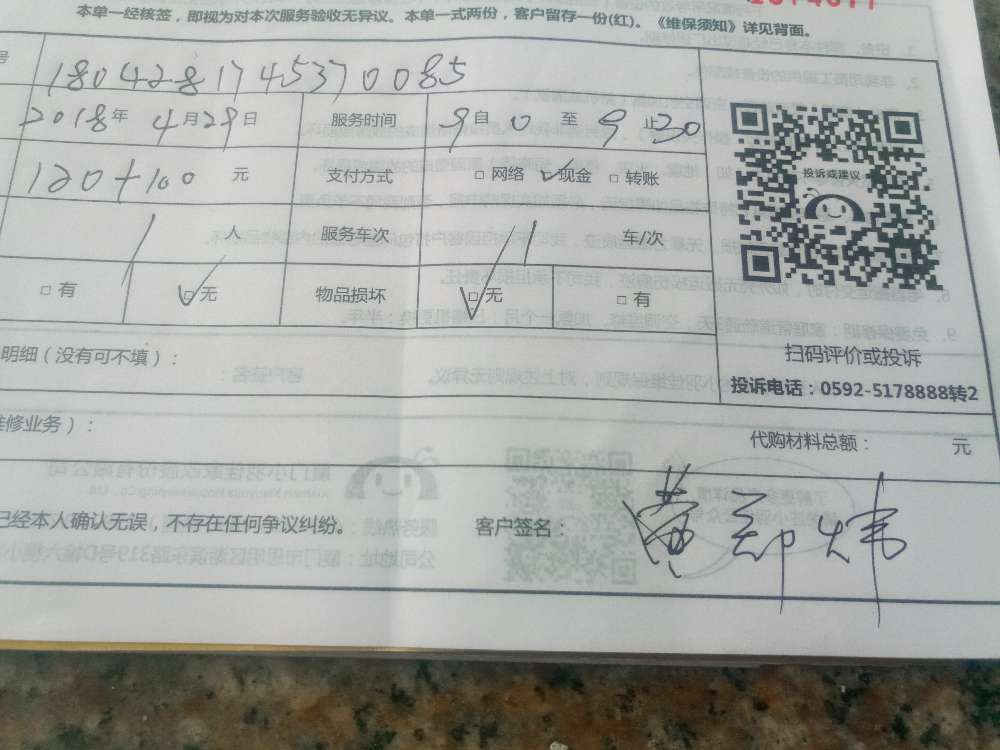 本单一经核签，即视为对本次服务验收无异议。本单一式两份，客户留存一份(红)。《维保须知》详见背面。
号 1804281745370085
2018年 4月29日 服务时间 9自0至9止30
120+100 元 支付方式 □网络 ☑现金 □转账
投诉或建议
/ 人 服务车次 / 车/次
□有 ☑无 物品损坏 ☑无 □有
明细（没有可不填）：
扫码评价或投诉
投诉电话：0592-5178888转2
维修业务）：
代购材料总额： 元
已经本人确认无误，不存在任何争议纠纷。 客户签名： 黄郑炜